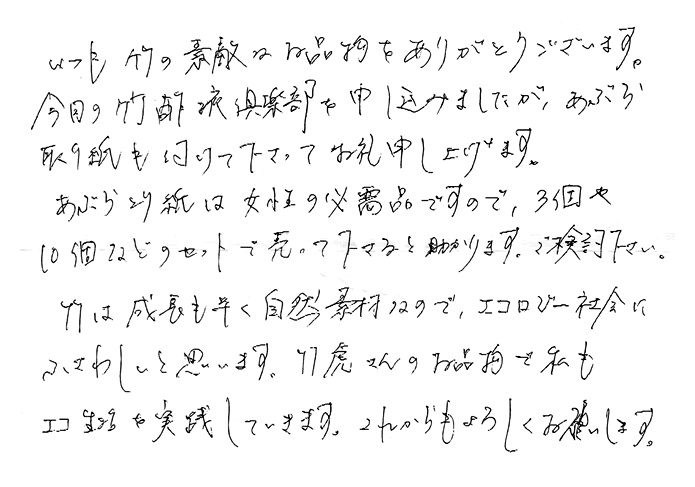 いつも竹の素敵なお品物をありがとうございます。
今回の竹酢液倶楽部を申し込みましたが、あぶら
取り紙も付けて下さってお礼申し上げます。
あぶらとり紙は女性の必需品ですので、3個や
10個などのセットで売って下さると助かります。ご検討下さい。
竹は成長も早く自然素材なので、エコロジー社会に
ふさわしいと思います。竹虎さんのお品物で私も
エコ生活を実践しています。これからもよろしくお願いします。